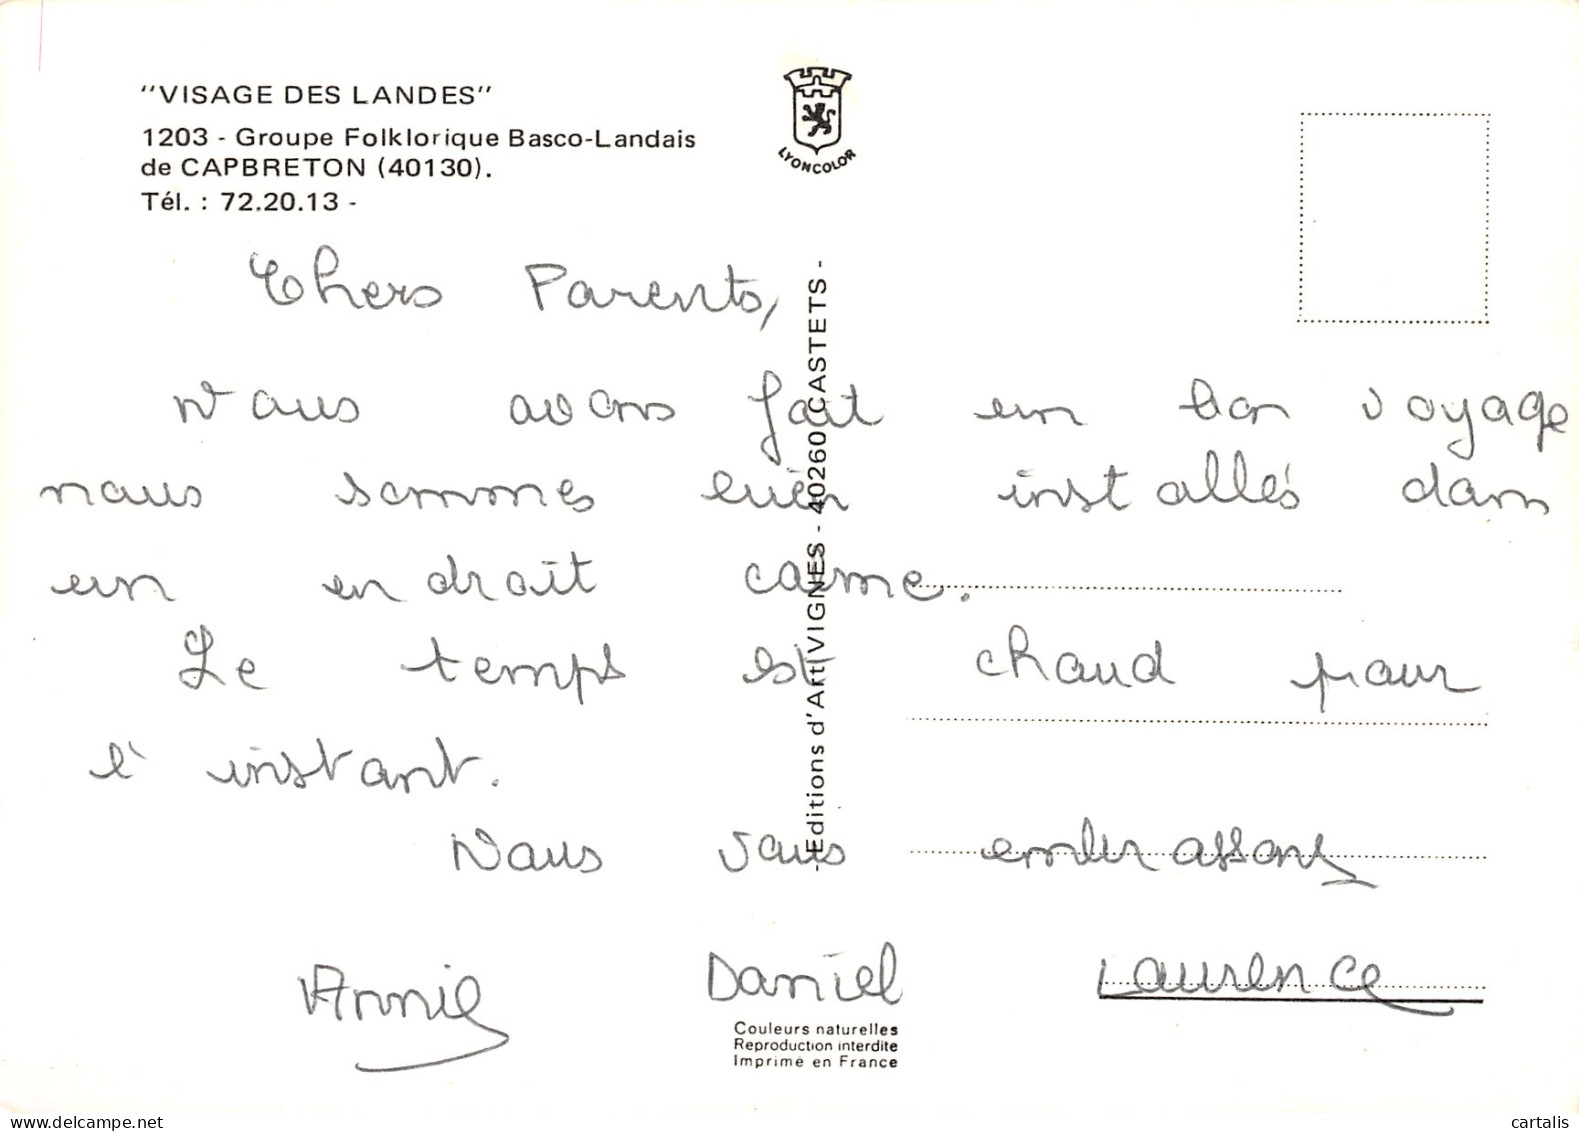 "VISAGE DES LANDES"
1203 - Groupe Folklorique Basco-Landais
de CAPBRETON (40130).
Tél. : 72.20.13 -
LYONCOLOR
Chers Parents,
Nous avons fait un bon voyage
nous sommes bien installés dans
un endroit calme.
Le temps est chaud pour
l'instant.
Nous vous embrassons
Annie Daniel Laurence
- Editions d'Art VIGNES - 40260 CASTETS -
Couleurs naturelles
Reproduction interdite
Imprimé en France
delcampe.net
cartalis